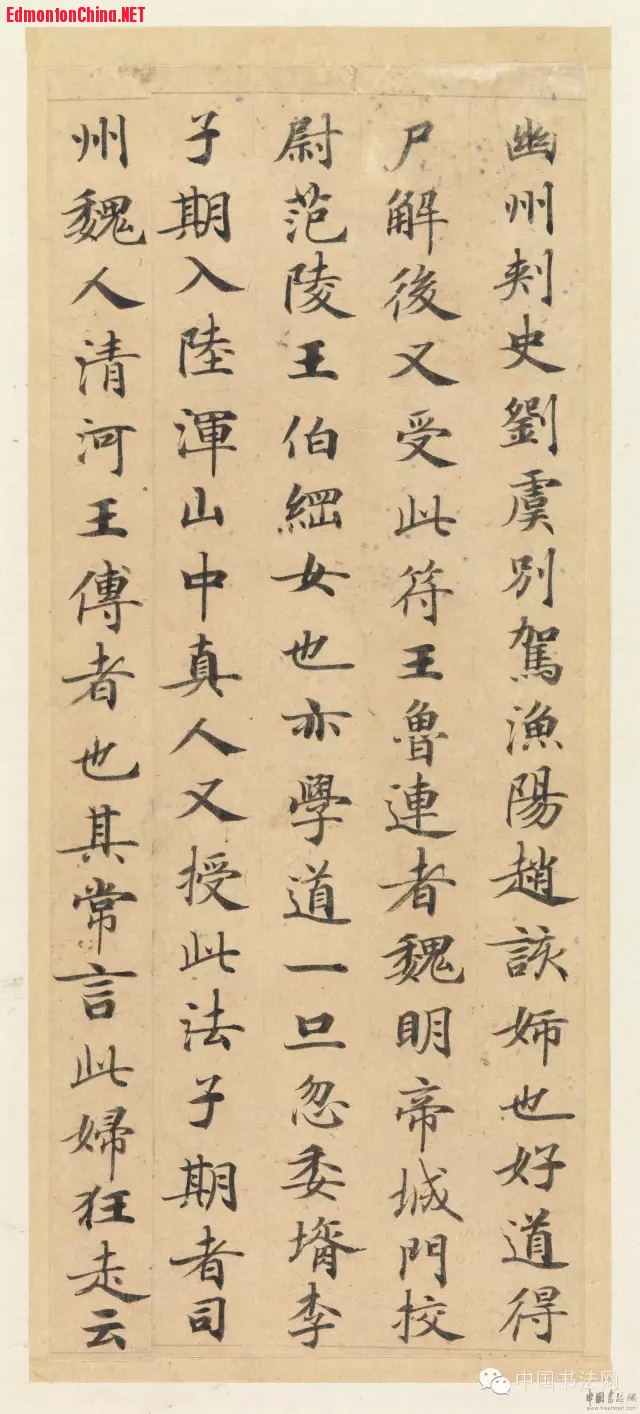 EdmontonChina.NET
幽州刾史劉虞別駕漁陽趙該姉也好道得
尸解後又受此符王魯連者魏明帝城門挍
尉范陵王伯綱女也亦學道一旦忽委壻李
子期入陸渾山中真人又授此法子期者司
州魏人清河王傅者也其常言此婦狂走云
中国书法网
中國書法網
www.freehead.com